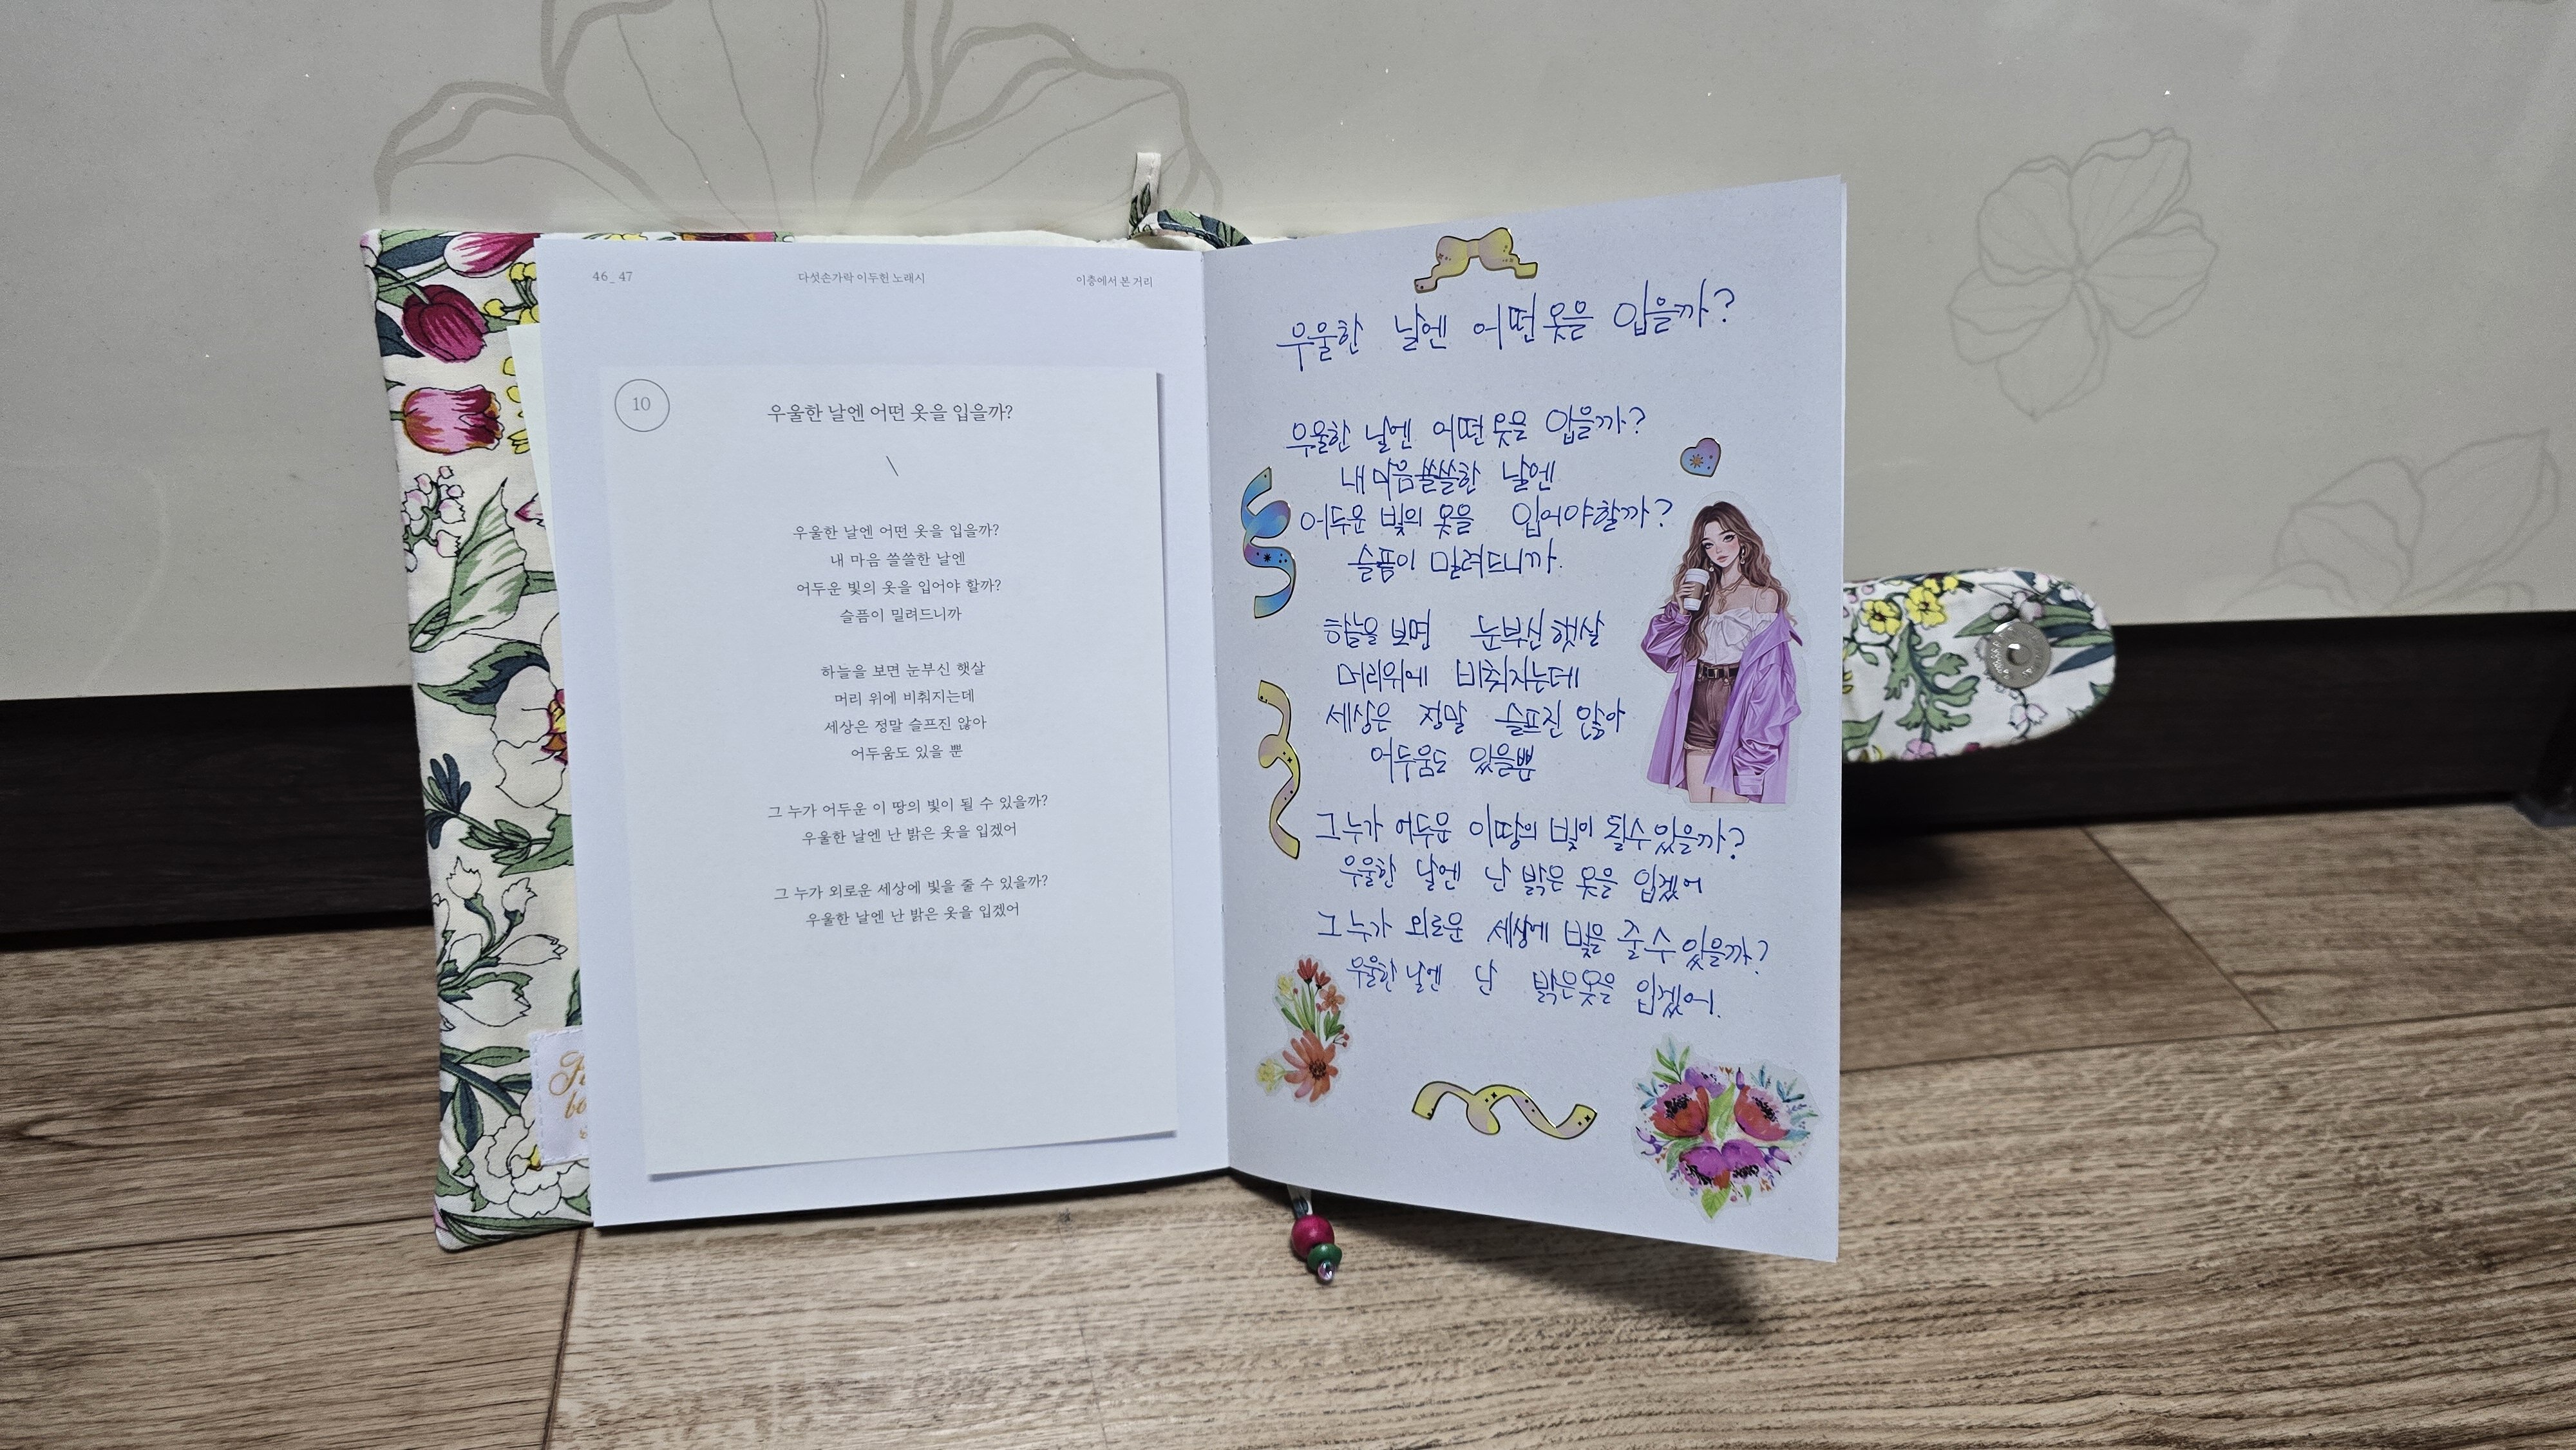 46_ 47
다섯손가락 이두헌 노래시
이층에서 본 거리
10
우울한 날엔 어떤 옷을 입을까?
\
우울한 날엔 어떤 옷을 입을까?
내 마음 쓸쓸한 날엔
어두운 빛의 옷을 입어야 할까?
슬픔이 밀려드니까
하늘을 보면 눈부신 햇살
머리 위에 비춰지는데
세상은 정말 슬프진 않아
어두움도 있을 뿐
그 누가 어두운 이 땅의 빛이 될 수 있을까?
우울한 날엔 난 밝은 옷을 입겠어
그 누가 외로운 세상에 빛을 줄 수 있을까?
우울한 날엔 난 밝은 옷을 입겠어
우울한 날엔 어떤 옷을 입을까?
우울한 날엔 어떤 옷을 입을까?
내 마음 쓸쓸한 날엔
어두운 빛의 옷을 입어야 할까?
슬픔이 밀려드니까.
하늘을 보면 눈부신 햇살
머리위에 비춰지는데
세상은 정말 슬프진 않아
어두움도 있을뿐
그 누가 어두운 이땅의 빛이 될수 있을까?
우울한 날엔 난 밝은 옷을 입겠어
그 누가 외로운 세상에 빛을 줄수 있을까?
우울한 날엔 난 밝은옷을 입겠어.